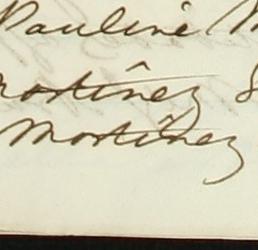 Pauline M
Martinez &
Martinez